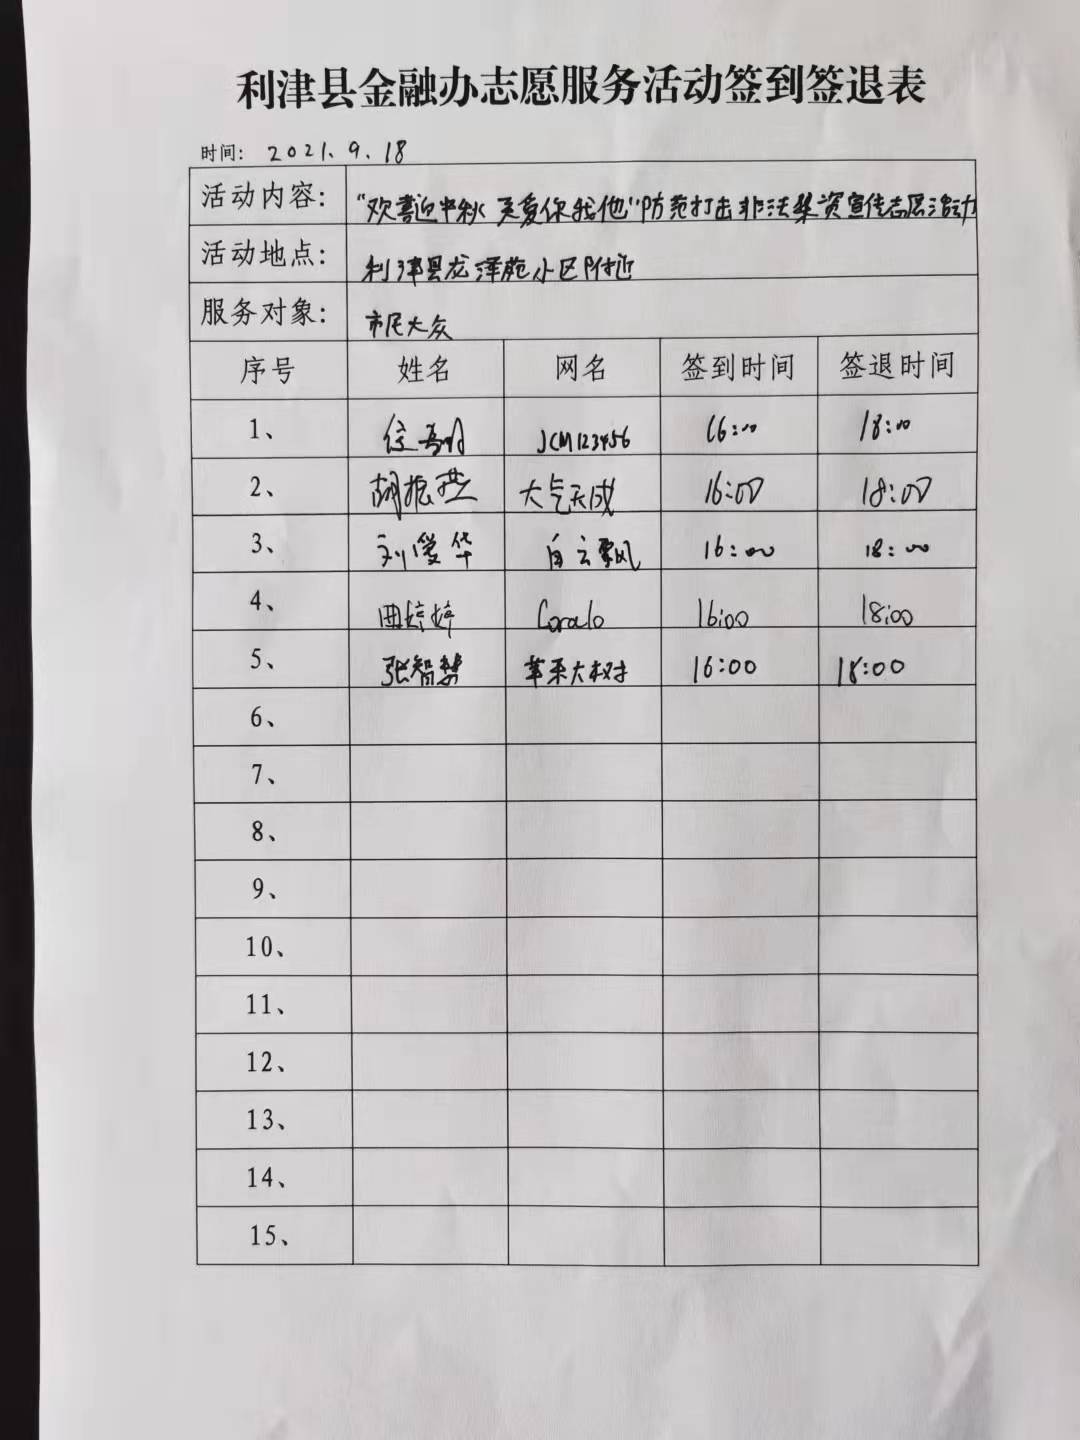 利津县金融办志愿服务活动签到签退表
时间: 2021.9.18
活动内容: "欢喜迎中秋 关爱你我他"防范打击非法集资宣传志愿活动
活动地点: 利津县龙泽苑小区附近
服务对象: 市民大众
序号 姓名 网名 签到时间 签退时间
1、 JCM123456 16:00 18:00
2、 胡振燕 大气天成 16:00 18:00
3、 刘爱华 白云飘风 16:00 18:00
4、 曲婷婷 Coralo 16:00 18:00
5、 张智慧 苹果大树 16:00 18:00
6、
7、
8、
9、
10、
11、
12、
13、
14、
15、